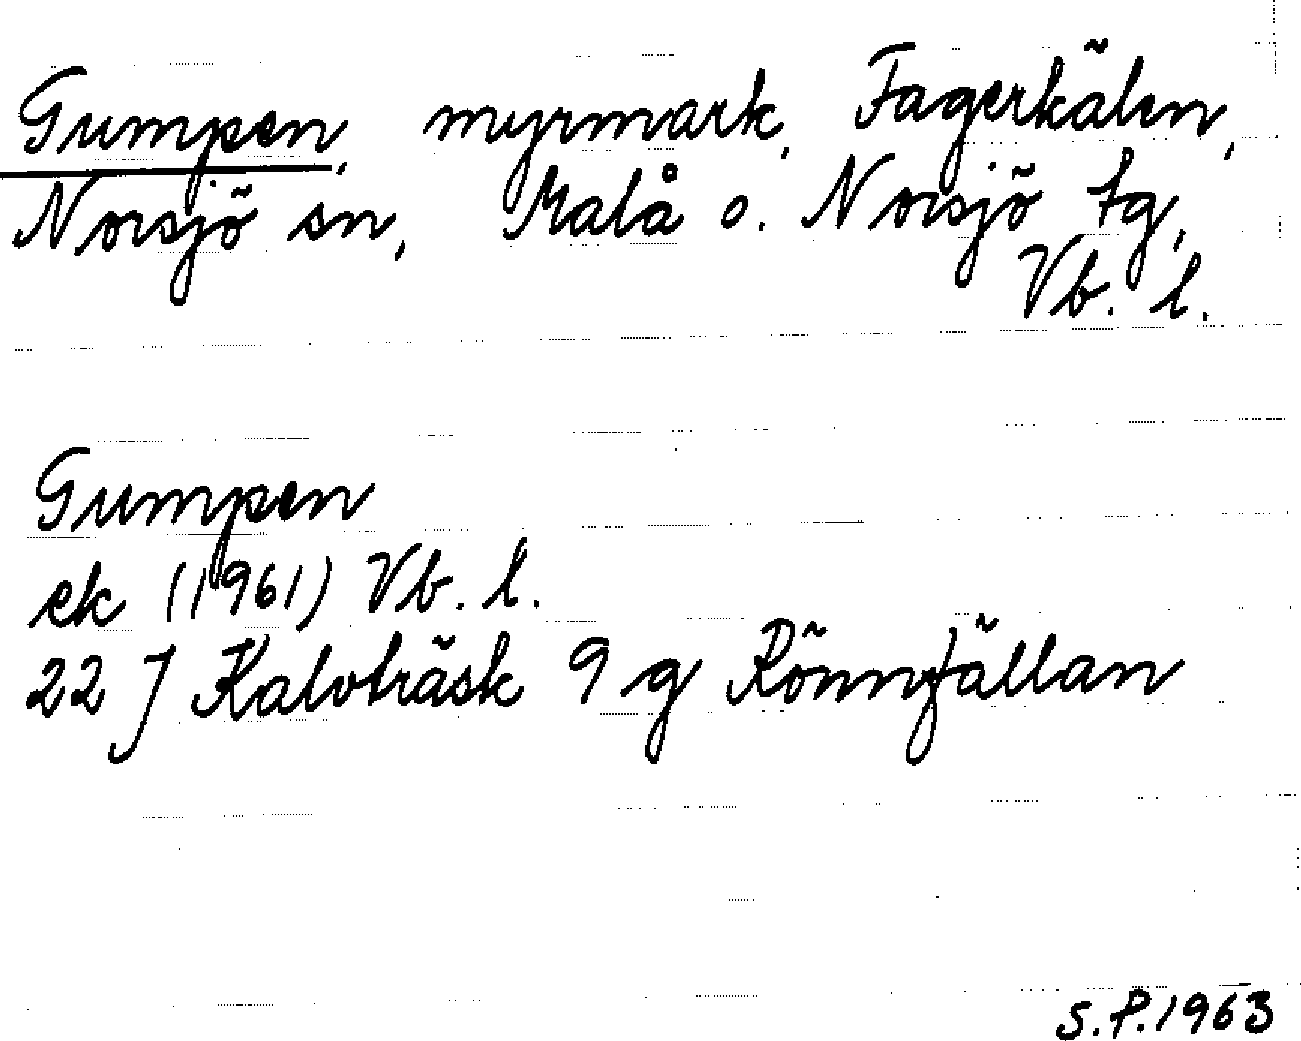 Gumpen, myrmark, Fagerkälen,
Norsjö sn, Malå o. Norsjö tg,
Vb. l.
Gumpen
ek (1961) Vb. l.
22 J Kalvträsk 9 g Rönnfällan
S.P. 1963